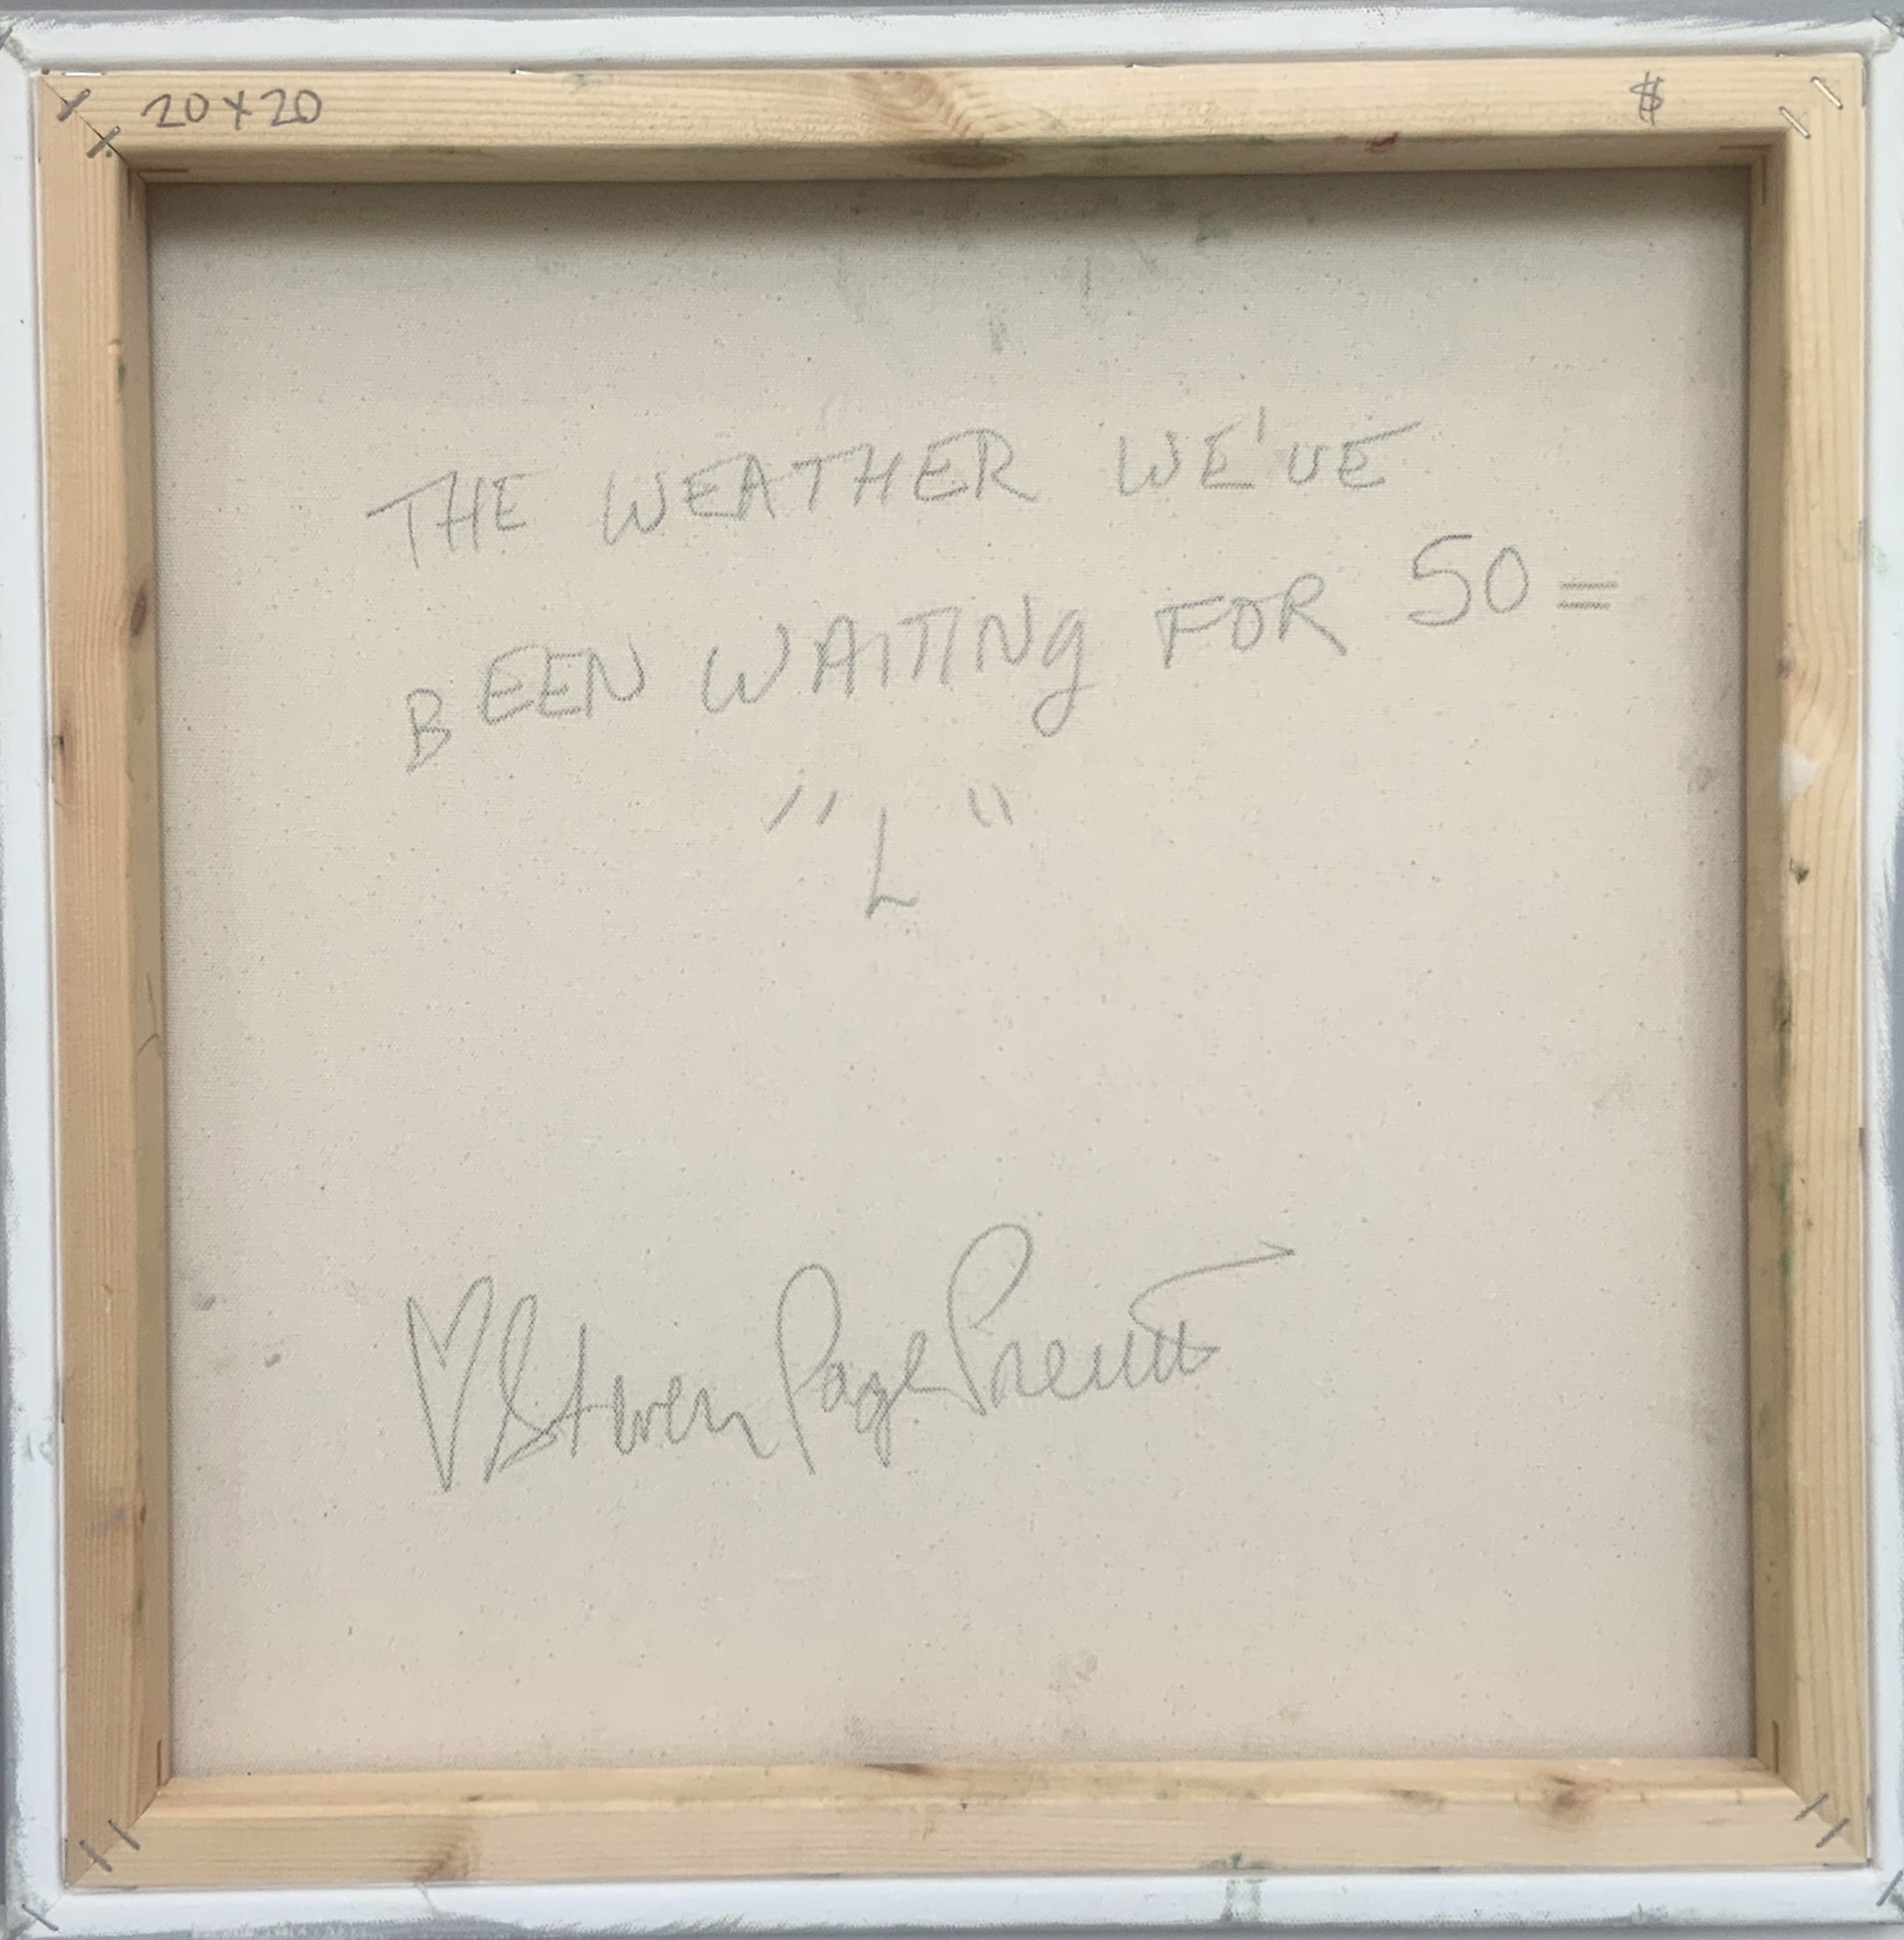 20x20 $
THE WEATHER WE'VE
BEEN WAITING FOR 50 =
"L"
♡ Steven Page Prewitt